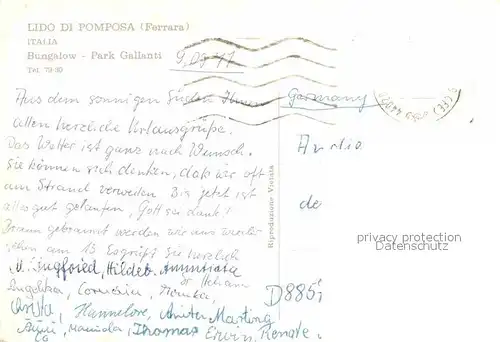 LIDO DI POMPOSA (Ferrara)
ITALIA
Bungalow - Park Gallanti
Tel. 79-80
Germany
Aus dem sonnigen Süden Ihnen
allen herzliche Urlausgrüße.
Das Wetter ist ganz nach Wunsch.
Sie können sich denken, daß wir oft
am Strand verweilen. Bis jetzt ist
alles gut gelaufen, Gott sei dank!
Braun gebrannt werden wir uns wieder
sehen am 13. Es grüßt Sie herzlich
Hildeb. Annuntiata
Angelika, Cornelia, Monika,
Christa, Hannelore, Martina
Manuela, Thomas Erwin, Renate.
An die
de
D 885
Riproduzione Vietata
privacy protection
Datenschutz